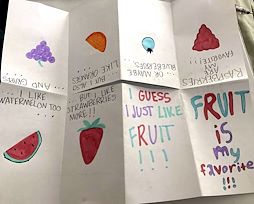 FRUIT
is
my
favorite
!!!
RASPBERRIES
ARE MY
FAVORITE!!
OR MAYBE
BLUEBERRIES
...
BUT I ALSO
LIKE ORANGES
...
... AND
... I LIKE
WATERMELON TOO
... BUT I LIKE
STRAWBERRIES
MORE!!
I GUESS
I JUST LIKE
FRUIT
!!!